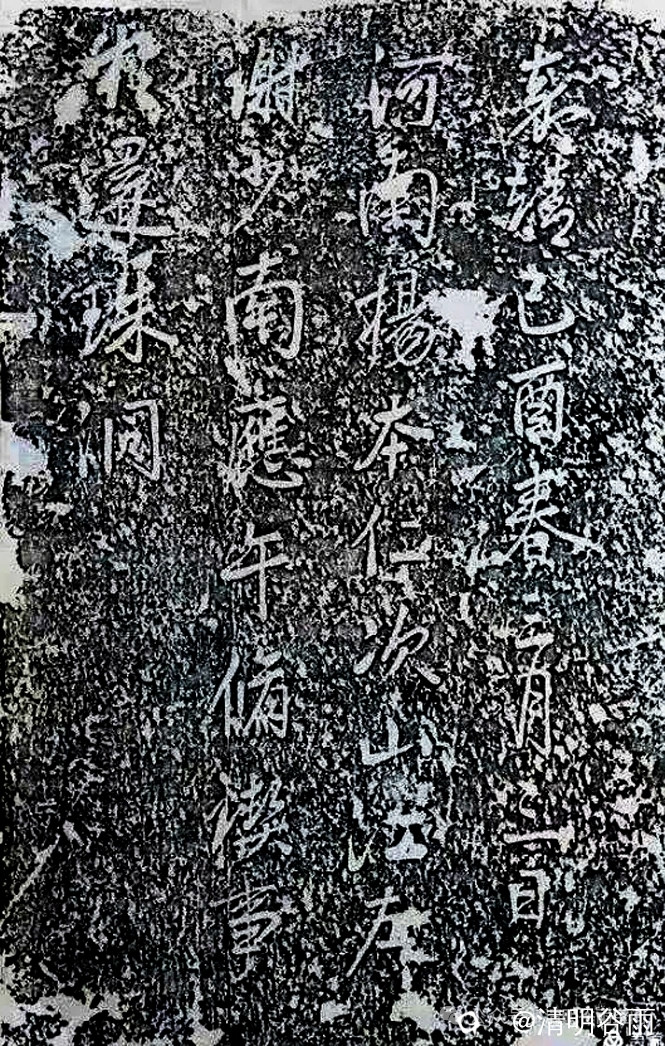 嘉靖己酉春三月三日
河南楊本仁次山江左
謝少南應午脩禊事
於還珠洞
@清明谷雨